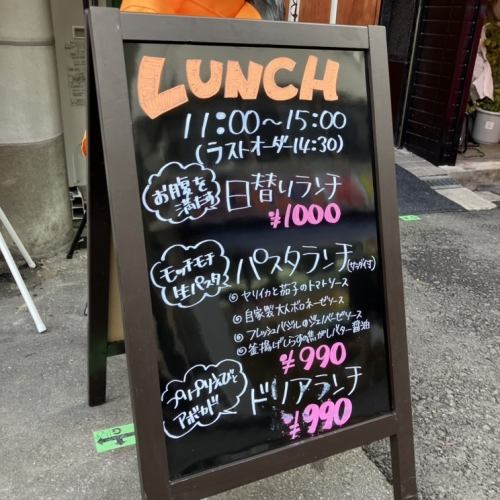 LUNCH
11:00～15:00
(ラストオーダー14:30)
お腹を
満たす
日替りランチ
¥1000
モッチモチ
生パスタ
パスタランチ(サラダ付)
◎ヤリイカと茄子のトマトソース
◎自家製大人ボロネーゼソース
◎フレッシュバジルのジェノベーゼソース
◎釜揚げしらすの焦がしバター醤油
¥990
プリプリえびと
アボカド
ドリアランチ
¥990